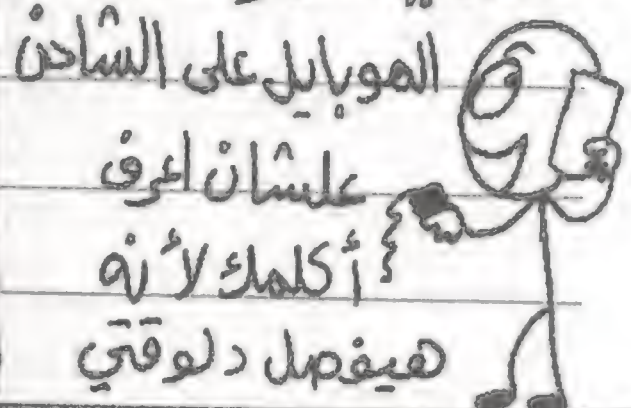 الموبايل على الشاحن
علشان اعرف
أكلمك لأنه
هيفصل دلوقتي